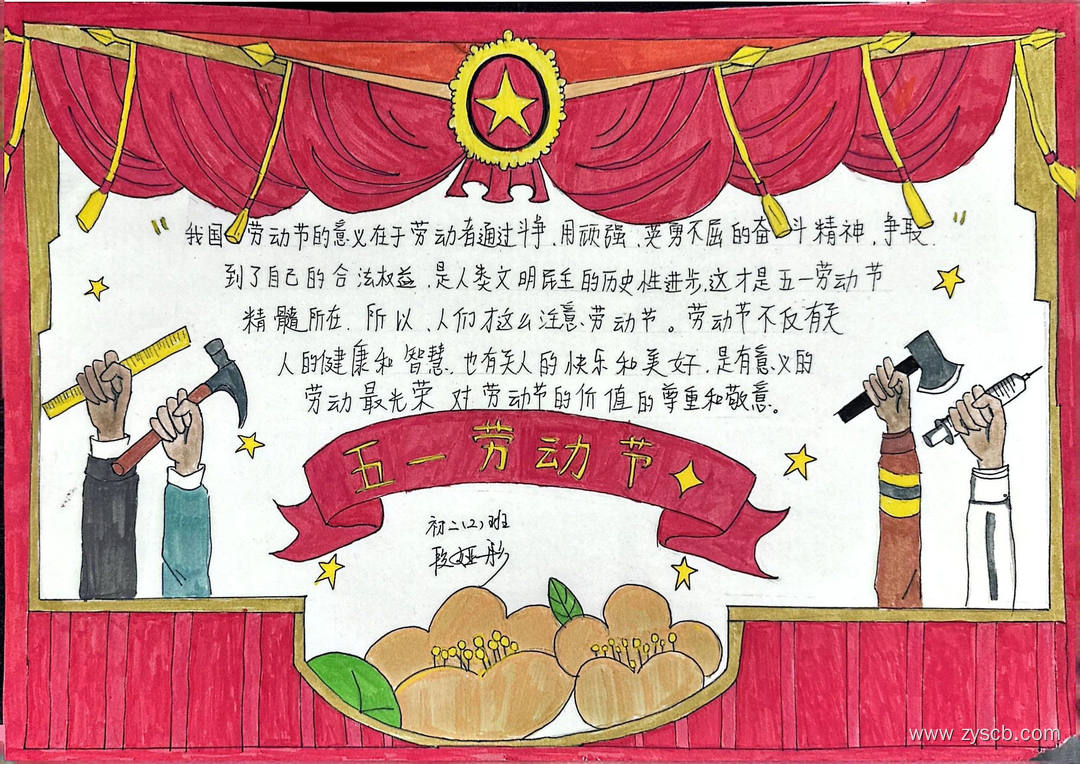 我国 劳动节的意义在于劳动者通过斗争,用顽强、英勇不屈的奋斗精神,争取
到了自己的合法权益,是人类文明民主的历史性进步,这才是五一劳动节
精髓所在.所以,人们才这么注意劳动节。劳动节不仅有关
人的健康和智慧.也有关人的快乐和美好.是有意义的
劳动最光荣 对劳动节的价值的尊重和敬意。
五一劳动节
初二(2)班
段娅彤
www.zyscb.com